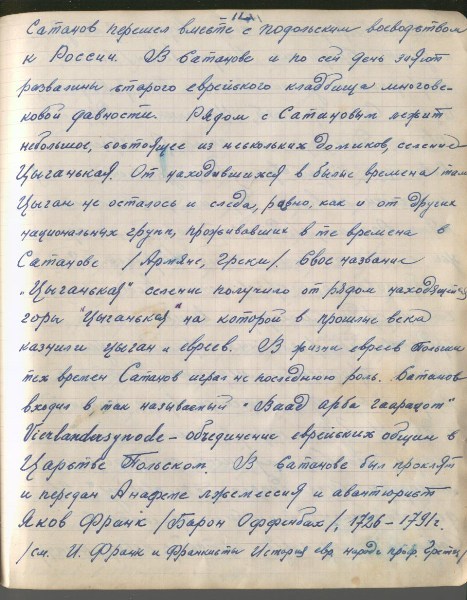 14
Сатанов перешел вместе с подольским воеводством
к России. В Сатанове и по сей день зияют
развалины старого еврейского кладбища многове-
ковой давности. Рядом с Сатановым лежит
небольшое, состоящее из нескольких домиков, селение
Цыганькая. От находившихся в былые времена там
Цыган не осталось и следа, равно, как и от других
национальных групп, проживавших в те времена в
Сатанове /Армяне, Греки/. Свое название
"Цыганькая" селение получило от рядом находящейся
горы "Цыганькая" на которой в прошлые века
казнили цыган и евреев. В жизни евреев Польши
тех времен Сатанов играл не последнюю роль. Сатанов
входил в так называемый "Ваад арба гаарацот"
Vierländersynode - объединение еврейских общин в
Царстве Польском. В Сатанове был проклят
и передан Анафеме лжемессия и авантюрист
Яков Франк /Барон Оффенбах/, 1726-1791г.
/см. И. Франк и Франкисты История евр. народа проф. Гретц/